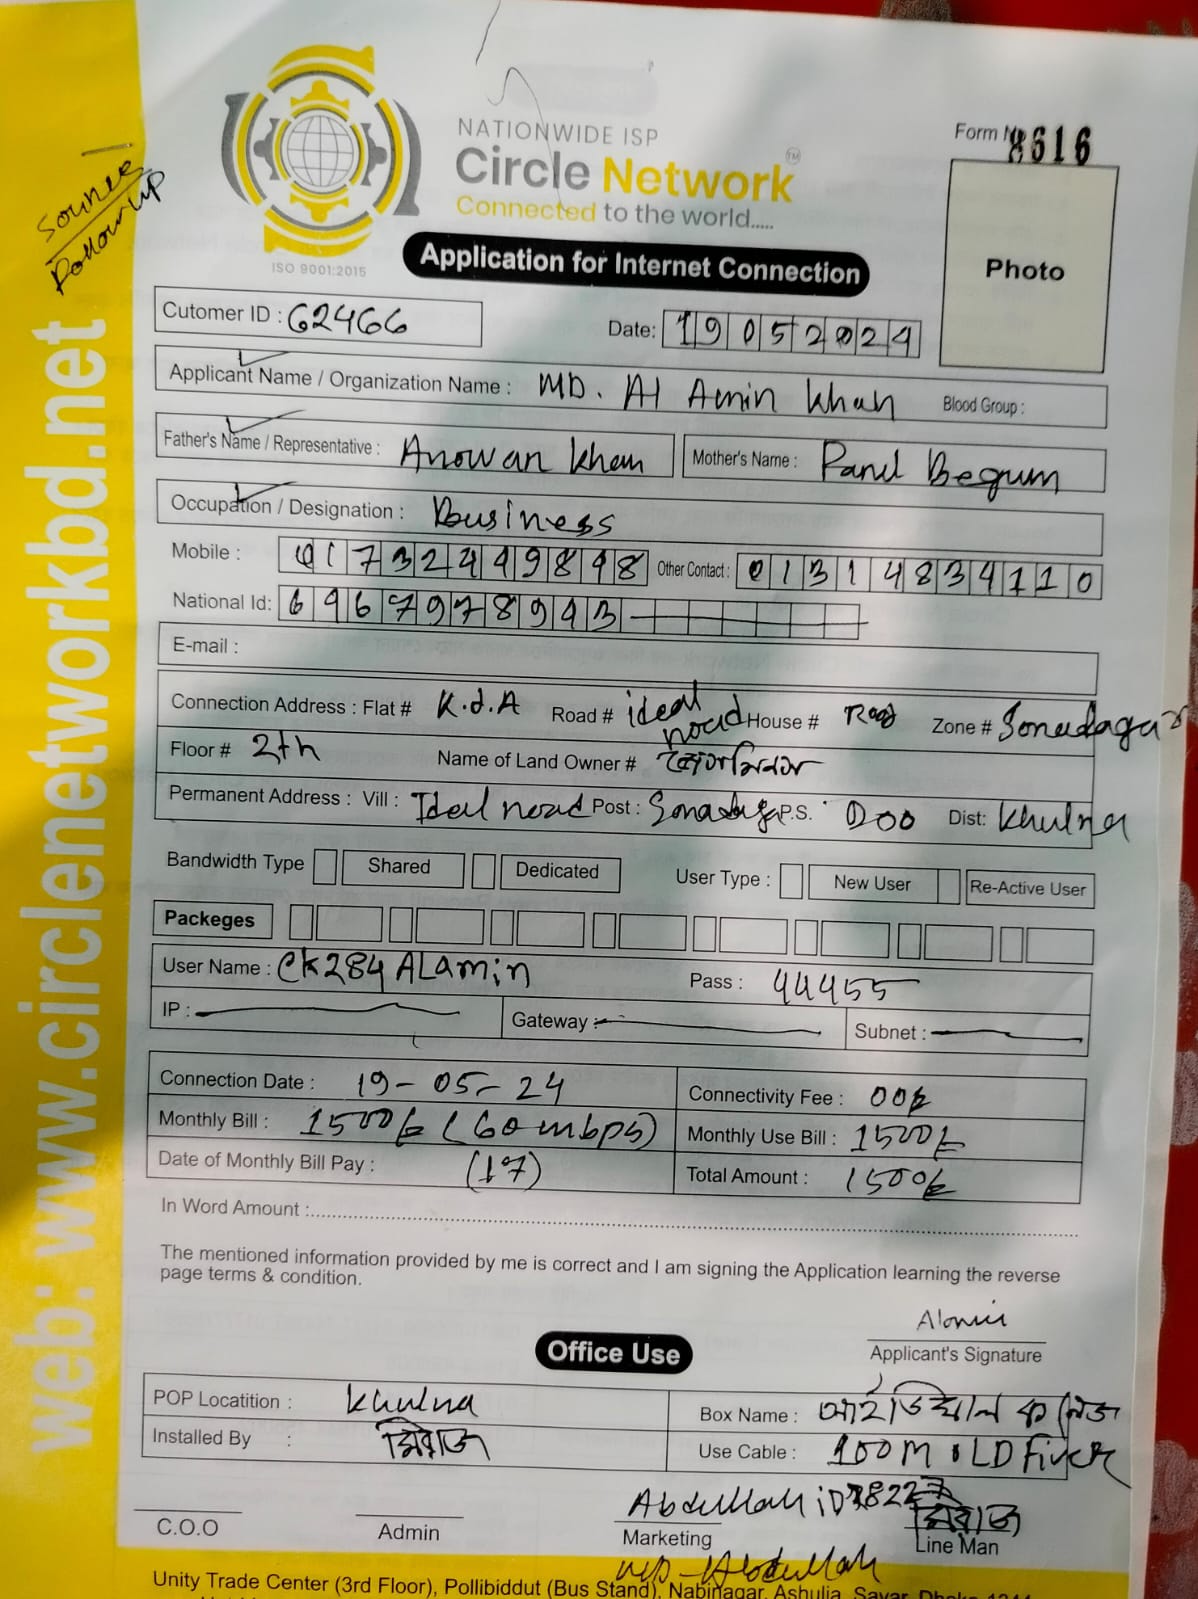 NATIONWIDE ISP
Circle Network
TM
Connected to the world.....
ISO 9001:2015
Form 8616
Photo
Source
Follow Up
Application for Internet Connection
Cutomer ID : 62466
Date: 19052024
Applicant Name / Organization Name : MD. Al Amin Khan Blood Group :
Father's Name / Representative : Anowar Khan Mother's Name : Begum
Occupation / Designation : Business
Mobile : Other Contact : 01314834110
National Id:
E-mail :
Connection Address : Flat # K.d.A Road # ideal road House # Road Zone # Sonadagar
Floor # 2th Name of Land Owner #
Permanent Address : Vill : Ideal road Post : P.S. : Doo Dist: Khulna
Bandwidth Type Shared Dedicated User Type : New User Re-Active User
Packeges
User Name : CK284 ALamin Pass : 44455
IP : Gateway : Subnet :
Connection Date : 19-05-24 Connectivity Fee : 00৳
Monthly Bill : 1500৳ (60 mbps) Monthly Use Bill : 1500৳
Date of Monthly Bill Pay : (17) Total Amount : 1500৳
In Word Amount :
The mentioned information provided by me is correct and I am signing the Application learning the reverse
page terms & condition.
Alamin
Applicant's Signature
Office Use
POP Locatition : Khulna Box Name : আইডিয়াল কলেজ
Installed By : মিরাজ Use Cable : 100M OLD
Abdullah iD
মিরাজ
C.O.O Admin Marketing Line Man
Abdullah
Unity Trade Center (3rd Floor), Pollibiddut (Bus Stand), Nabinagar, Ashulia, Savar, Dhaka
web: www.circlenetworkbd.net